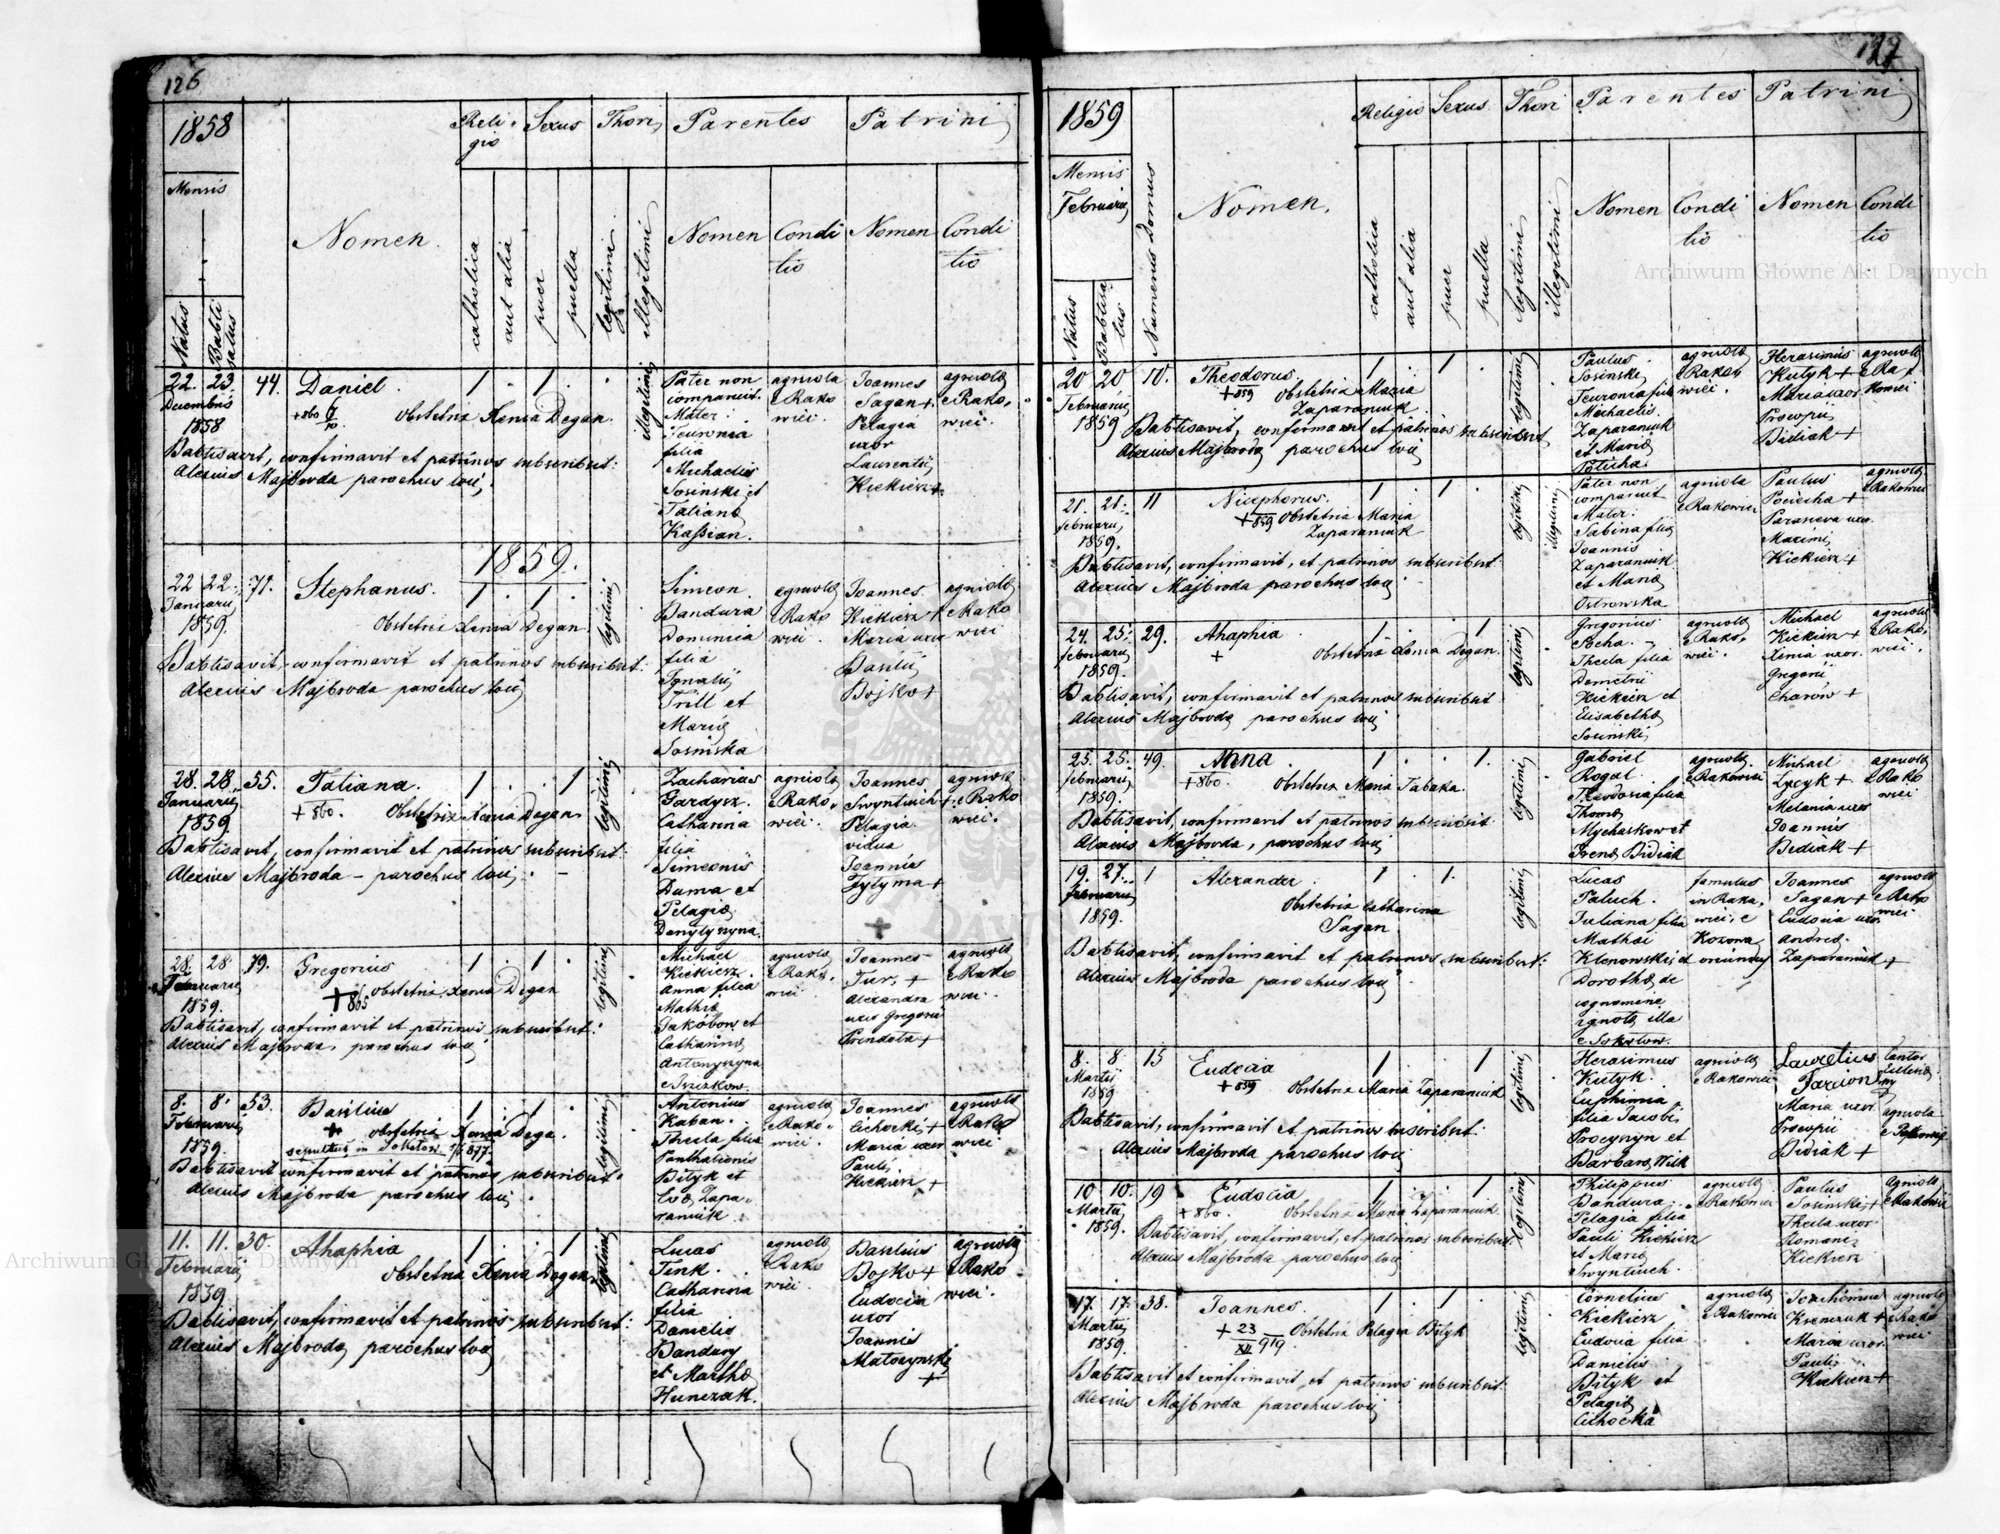 126
1858
Religio
Sexus
Thori
Parentes
Patrini
Mensis
Nomen.
catholica
aut alia
puer
puella
legitimi
illegitimi
Nomen
Conditio
Nomen
Conditio
Natus
Babtisatus
22. 23. 44. Daniel. 1 . 1 . .
Decembris
1858
+860 7/10 Obstetrix Xenia Degan.
Babtisavit, confirmavit et patrinos subscribit:
Alexius Majbroda parochus loci
illegitimi
Pater non
comparuit.
Mater:
Feuronia
filia
Michaelis
Sosinski et
Tatiana
Kassian.
agricola
e Rako
wici.
Joannes
Sagan +
Pelagia
uxor
Laurentii
Kiekisz +
agricola
e Rako,
wici.
1859.
22 22. 71. Stephanus. 1 . 1 .
Januarii
1859.
Obstetrix Xenia Degan
Babtisavit, confirmavit et patrinos subscribit:
Alexius Majbroda parochus loci
legitimi
Simeon
Bandura
Dominica
filia
Ignatii
Trill et
Maria
Sosinska
agricola
e Rako
wici.
Joannes
Kiekisz +
Maria uxor
Danili
Bojko +
agricola
e Rako
wici
28. 28. 55. Tatiana. 1 . . 1
Januarii
1859
+ 860. Obstetrix Xenia Degan
Babtisavit, confirmavit et patrinos subscribit:
Alexius Majbroda – parochus loci
legitimi
Zacharias
Gardysz.
Catharina
filia
Simeonis
Duma et
Pelagia
Danylyszyna.
agricola
e Rako,
wici.
Joannes
Swyntuch +
Pelagia
vidua
Joannis
Tytyma +
agricola
e Rako
wici.
28. 28 79. Gregorius 1 . 1 .
1859.
+ 865 Obstetrix Xenia Degan
Babtisavit, confirmavit et patrinos subscribit:
Alexius Majbroda, parochus loci
legitimi
Michael
Kiekisz.
Anna filia
Mathia
Jakobow et
Catharina
Antonyszyna
agricola
e Rako,
wici
Joannes
Tur, +
Alexandra
uxor Gregorii
Prendota +
agricola
e Rako
wici.
8. 8. 53. Basilius 1 . 1 .
Februarii
1859.
+ Obstetrix Xenia Dega.
sepultus in Sokolow
Babtisavit confirmavit et patrinos subscribit
Alexius Majbroda parochus loci
legitimi
Antonius
Kaban.
Thecla filia
Panthalionis
Bityk et
Eva Zapa-
raniuk
agricola
e Rako,
wici.
Joannes
Cichocki +
Maria uxor
Pauli
Kiekisz +
agricola
e Rako
wici
11. 11. 30. Ahaphia 1 . . 1
Februarii
1859
Obstetrix Xenia Degan
Babtisavit, confirmavit et patrinos subscribit:
Alexius Majbroda parochus loci
legitimi
Lucas
Fink.
Catharina
filia
Danielis
Bandury
et Martha
Hunczak.
agricola
e Rako
wici.
Basilius
Bojko +
Eudocia
uxor
Joannis
Matczynski
+
agricola
e Rako
wici.
127
1859
Religio
Sexus
Thori
Parentes
Patrini
Mensis
Februarii
Numerus Domus
Nomen.
catholica
aut alia
puer
puella
legitimi
illegitimi
Nomen
Conditio
Nomen
Conditio
Natus
Babtisatus
20 20 10. Theodorus. 1 . 1 .
Februarii
1859
+859 Obstetrix Maria
Zaparaniuk
Babtisavit, confirmavit et patrinos subscribit
Alexius Majbroda parochus loci
legitimi
Paulus
Sosinski,
Feuronia filia
Michaelis
Zaparaniuk
et Maria
Paticha.
agricola
e Rako
wici.
Herasimus
Kutyk +
Maria uxor
Procopii
Bidiak +
agricola
e Ra
kowici
21. 21. 11 Nicephorus. 1 . 1 .
Februarii
1859.
+859 Obstetrix Maria
Zaparaniuk
Babtisavit, confirmavit, et patrinos subscribit.
Alexius Majbroda parochus loci
legitimi
illegitimi
Pater non
comparuit
Mater:
Sabina filia
Joannis
Zaparaniuk
et Maria
Ostrowska
agricola
e Rakowici
Paulus
Pociecha +
Parasceva uxor
Maximi
Kiekisz +
agricola
e Rakowici
24. 25. 29. Ahaphia 1 . . 1
Februarii
1859.
+ Obstetrix Xenia Degan.
Babtisavit, confirmavit et patrinos subscribit
Alexius Majbroda parochus loci
legitimi
Gregorius
Socha.
Thecla filia
Demetrii
Kiekisz et
Elisabetha
Sosinski,
agricola
e Rako,
wici.
Michael
Kiekisz +
Xenia uxor
Gregorii
Charow +
agricola
e Rako,
wici.
25. 25. 49. Anna. 1 . . 1.
Februarii
1859.
+860. Obstetrix Maria Tabaka.
Babtisavit, confirmavit, et patrinos subscribit
Alexius Majbroda, parochus loci
legitimi
Gabriel
Rogal.
Theodosia filia
Thoma
Mychaskow et
Irena Bidiak
agricola
e Rakowici
Michael
Lycyk +
Melania uxor
Joannis
Bidiak +
agricola
e Rako
wici
19. 27. 1 Alexander 1 . 1.
Februarii
1859.
Obstetrix Catharina
Sagan
Babtisavit, confirmavit et patrinos subscribit:
Alexius Majbroda parochus loci
legitimi
Lucas
Paluch.
Juliana filia
Mathei
Klenowski et
Dorothea de
cognomine
ignota illa
e Sokolow.
famulus
in Rako,
wici, e
Kozowa
oriundus
Joannes
Sagan +
Eudocia uxor
Andrea
Zaparaniuk +
agricola
e Rako
wici
8. 8 15 Eudocia 1 . . 1
Martii
1859
+859 Obstetrix Maria Zaparaniuk
Babtisavit, confirmavit et patrinos subscribit.
Alexius Majbroda parochus loci
legitimi
Herasimus
Kutyk.
Euphimia
filia Jacobi
Procyszyn et
Barbara Wilk
agricola
e Rakowici
Lauretius
Farion
Maria uxor
Procopii
Bidiak +
Cantor
agricola
10 10. 19 Eudocia 1 . . 1
Martii
1859.
+860. Obstetrix Maria Zaparaniuk
Babtisavit, confirmavit, et patrinos subscribit:
Alexius Majbroda parochus loci
legitimi
Philippus
Bandura.
Pelagia filia
Pauli Kiekisz
et Maria
Swyntuch.
agricola
e Rakowici
Paulus
Sosinski +
Thecla uxor
Romani
Kiekisz
agricola
e Rakowici
17. 17. 38. Joannes. 1 . 1 .
Martii
1859.
+ 23/XII 919 Obstetrix Pelagia Bityk
Babtisavit et confirmavit, et patrinos subscribit.
Alexius Majbroda parochus loci
legitimi
Cornelius
Kiekisz
Eudocia filia
Danielis
Bityk et
Pelagia
Cichocka
agricola
e Rakowici
Joachimus
Maria uxor
Pauli
Kiekisz +
agricola
e Rako
wici
Archiwum Główne Akt Dawnych
Archiwum Główne Akt Dawnych